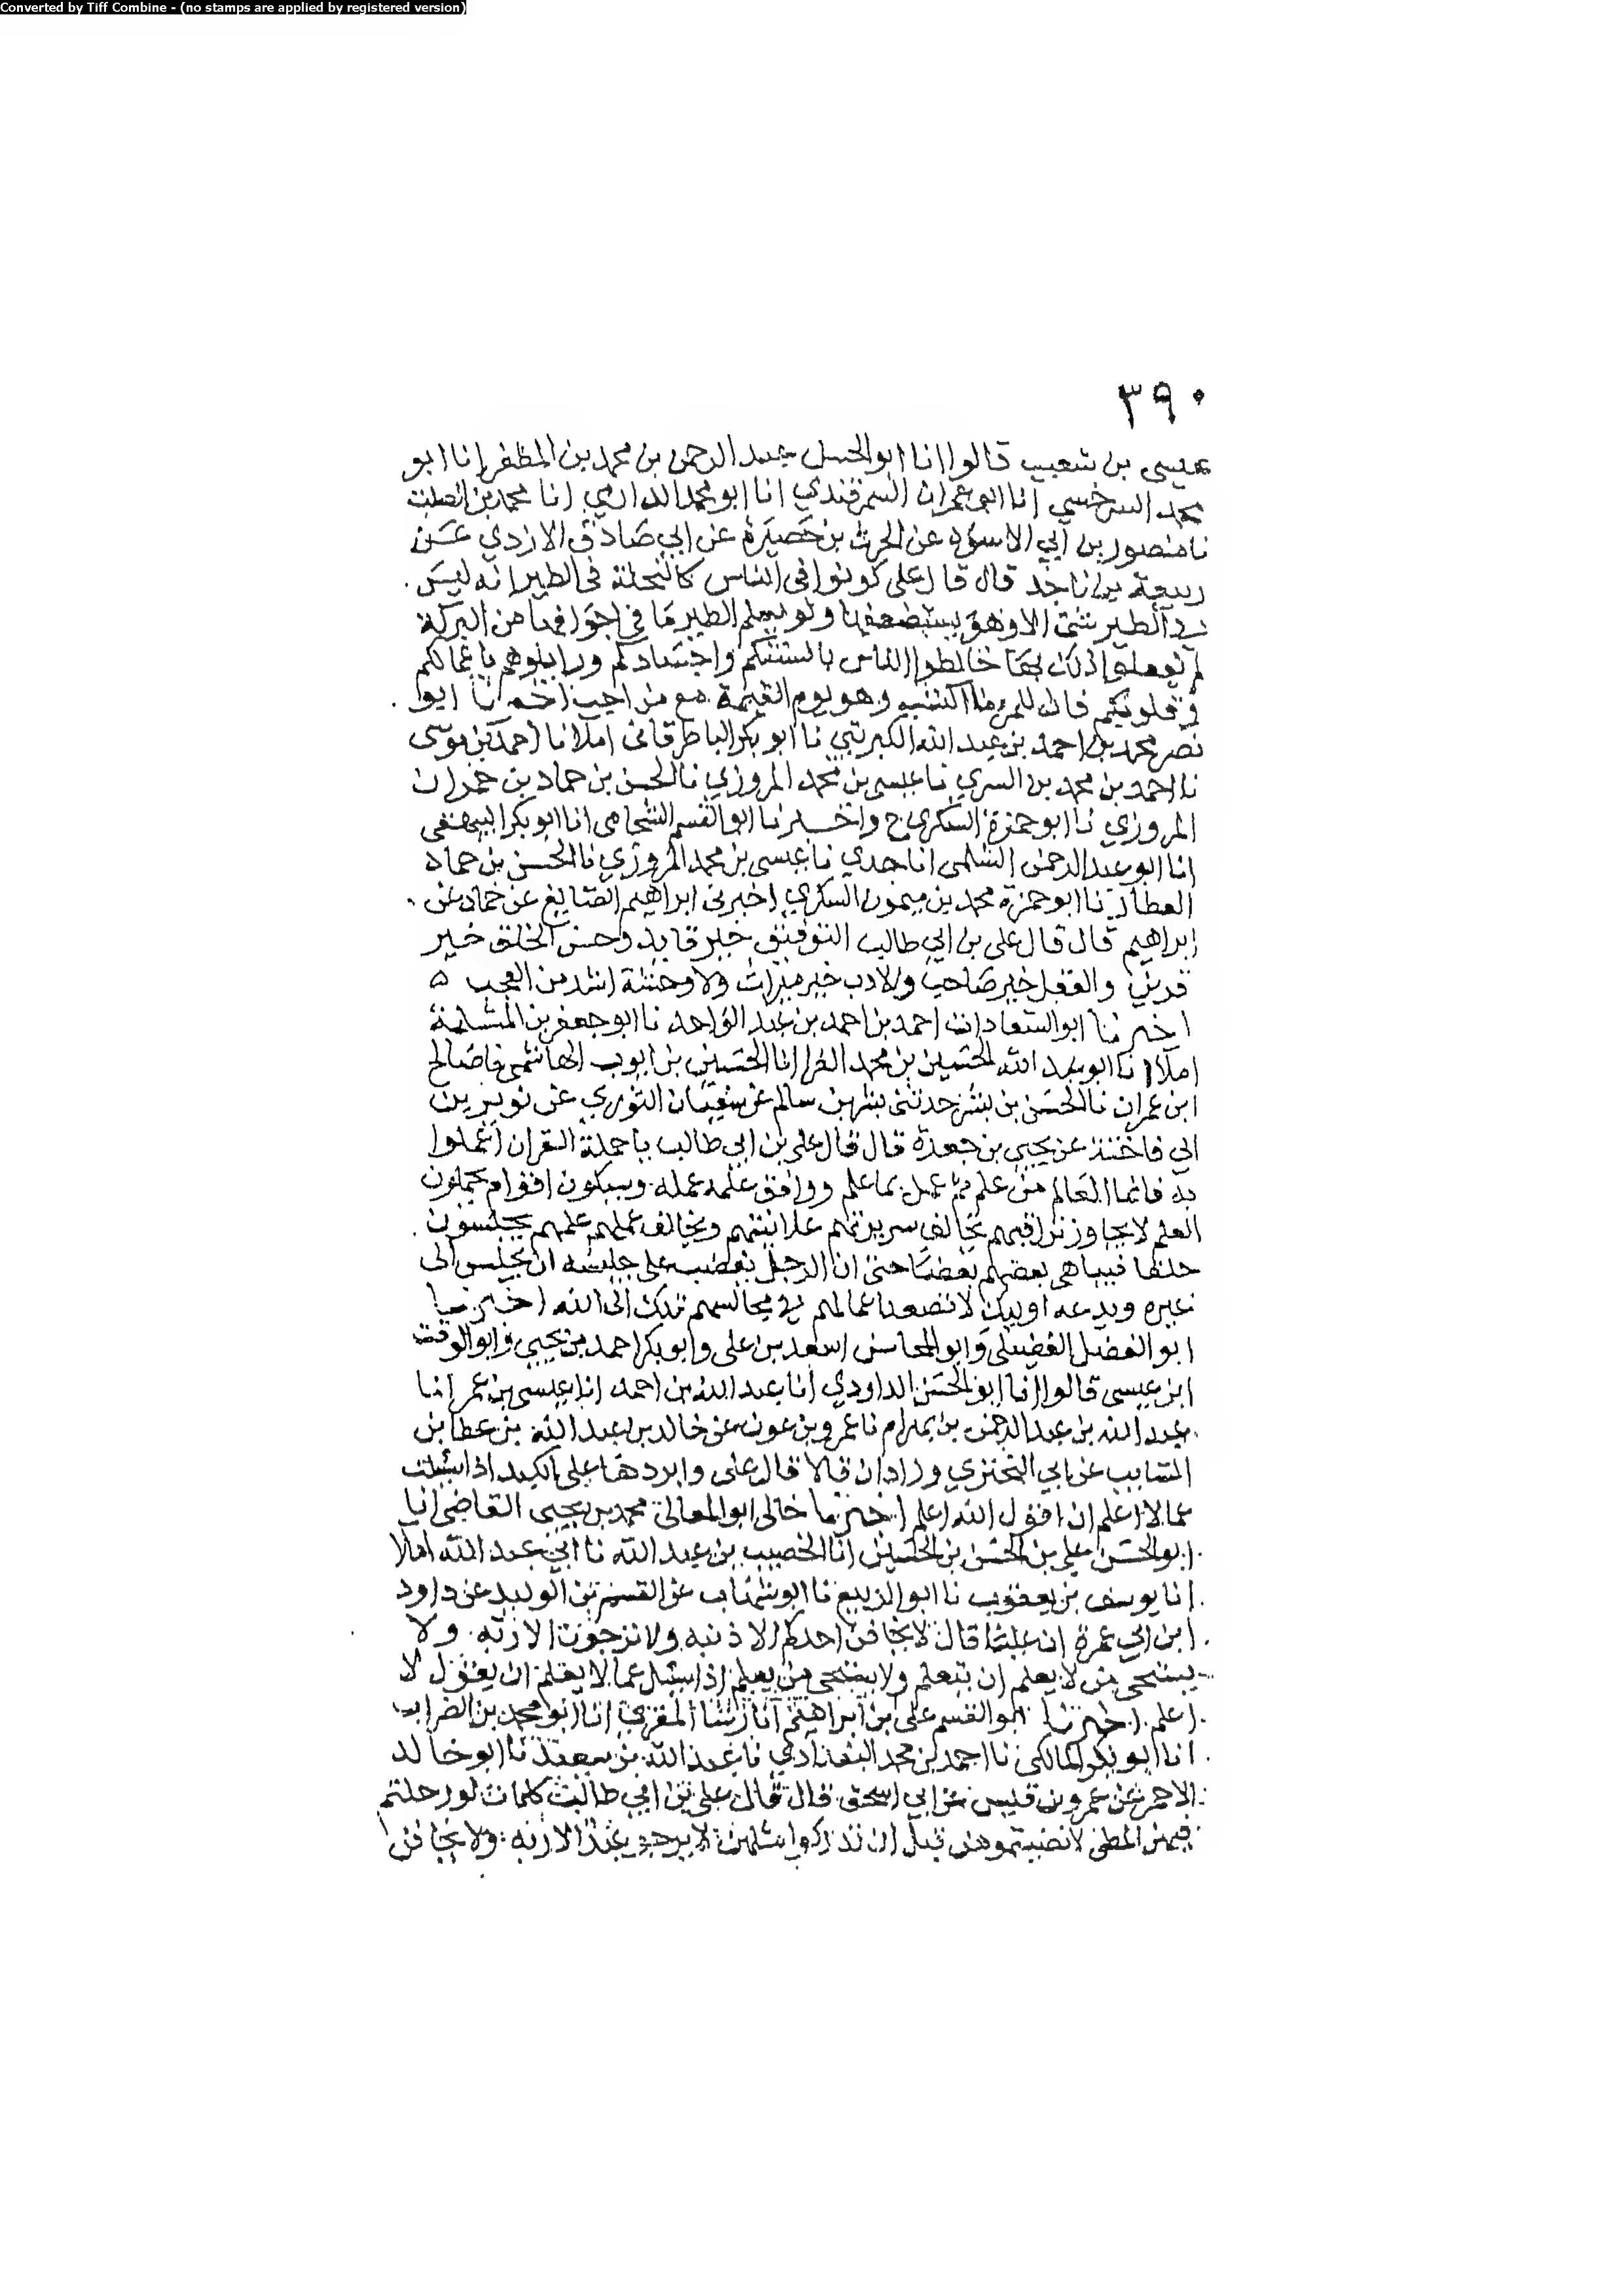 Converted by Tiff Combine - (no stamps are applied by registered version)
٣٩٠
عيسى بن شعيب قالوا انا ابو الحسن عبد الرحمن بن محمد بن المظفر انا ابو
محمد السرخسي انا ابو عمران السمرقندي انا ابو محمد الدارمي انا محمد بن الصلت
نا منصور بن ابي الاسود عن الحرث بن حصيرة عن ابي صادق الازدي عن
ربيعة بن ناجد قال قال على كونوا في الناس كالنحلة في الطير انه ليس
في الطير شئ الا وهو يستضعفها ولو يعلم الطير ما في اجوافها من البركة
لم يفعلوا ذلك بها خالطوا الناس بالسنتكم واجسادكم وزايلوهم باعمالكم
وقلوبكم فان للمرء ما اكتسب وهو يوم القيمة مع من احب اخبرنا ابو
نصر محمد بن احمد بن عبد الله الكبريتي نا ابو بكر الباطرقاني املا نا احمد بن موسى
نا احمد بن محمد بن السري نا عيسى بن محمد المروزي نا الحسن بن حماد بن حمران
المروزي نا ابو حمزة السكري ح واخبرنا ابو القسم الشحامي انا ابو بكر البيهقى
انا ابو عبد الرحمن السلمى انا جدي نا عيسى بن محمد المروزي نا الحسن بن حماد
العطار نا ابو حمزة محمد بن ميمون السكري اخبرني ابراهيم الصايغ عن حماد عن
ابراهيم قال قال على بن ابي طالب التوفيق خير قايد وحسن الخلق خير
قرين والعقل خير صاحب والادب خير ميراث ولا وحشة اشد من العجب ه
اخبرنا ابو السعادات احمد بن احمد بن عبد الواحد نا ابو جعفر بن المسلمة
املاا نا ابو عبد الله الحسين بن محمد الفرا انا الحسين بن ايوب الهاشمى نا صالح
ابن عمران نا الحسن بن بشر حدثنى بشر بن سالم عن سفيان الثوري عن ثوير بن
ابي فاختة عن يحيى بن جعدة قال قال على بن ابي طالب يا حملة القران اعملوا
به فانما العالم من علم ثم عمل بما علم ووافق علمه عمله وسيكون اقوام يحملون
العلم لا يجاوز تراقيهم تخالف سريرتهم علانيتهم ويخالف عملهم علمهم يجلسون
حلقا فيباهى بعضهم بعضا حتى ان الرجل يغضب على جليسه ان يجلس الى
غيره ويدعه اوليك لا تصعد اعمالهم في مجالسهم تلك الى الله اخبرنا
ابو الفضل الفضيلى وابو المحاسن اسعد بن على وابو بكر احمد بن يحيى وابو الوقت
ابن عيسى قالوا انا ابو الحسن الداودي انا عبد الله بن احمد انا عيسى بن عمر انا
عبد الله بن عبد الرحمن بن بهرام نا عمرو بن عون عن خالد بن عبد الله بن عطا بن
السايب عن ابي البختري وزاذان قالا قال على وابردها على الكبد اذا سئلت
عما لا اعلم ان اقول الله اعلم اخبرنا خالى ابو المعالى محمد بن يحيى القاضي انا
ابو الحسن على بن الحسن بن الحسين انا الخصيب بن عبد الله نا ابي عبد الله املا
انا يوسف بن يعقوب نا ابو الربيع نا ابو شهاب عن القسم بن الوليد عن داود
ابن ابي عمرة ان عليا قال لا يخافن احدكم الا ذنبه ولا ترجون الا ربه ولا
يستحى من لا يعلم ان يتعلم ولا يستحى من يعلم اذا سئل عما لا يعلم ان يقول لا
اعلم اخبرنا ابو القسم على بن ابراهيم انا رشا المقرئ انا ابو محمد بن الضراب
انا ابو بكر المالكى نا احمد بن محمد البغدادي نا عبد الله بن سعيد نا ابو خالد
الاحمر عن عمرو بن قيس عن ابي اسحق قال قال على بن ابي طالب كلمات لو رحلتم
فيهن المطى لانضيتموهن قبل ان تدركوا مثلهن لا يرجو عبد الا ربه ولا يخافن